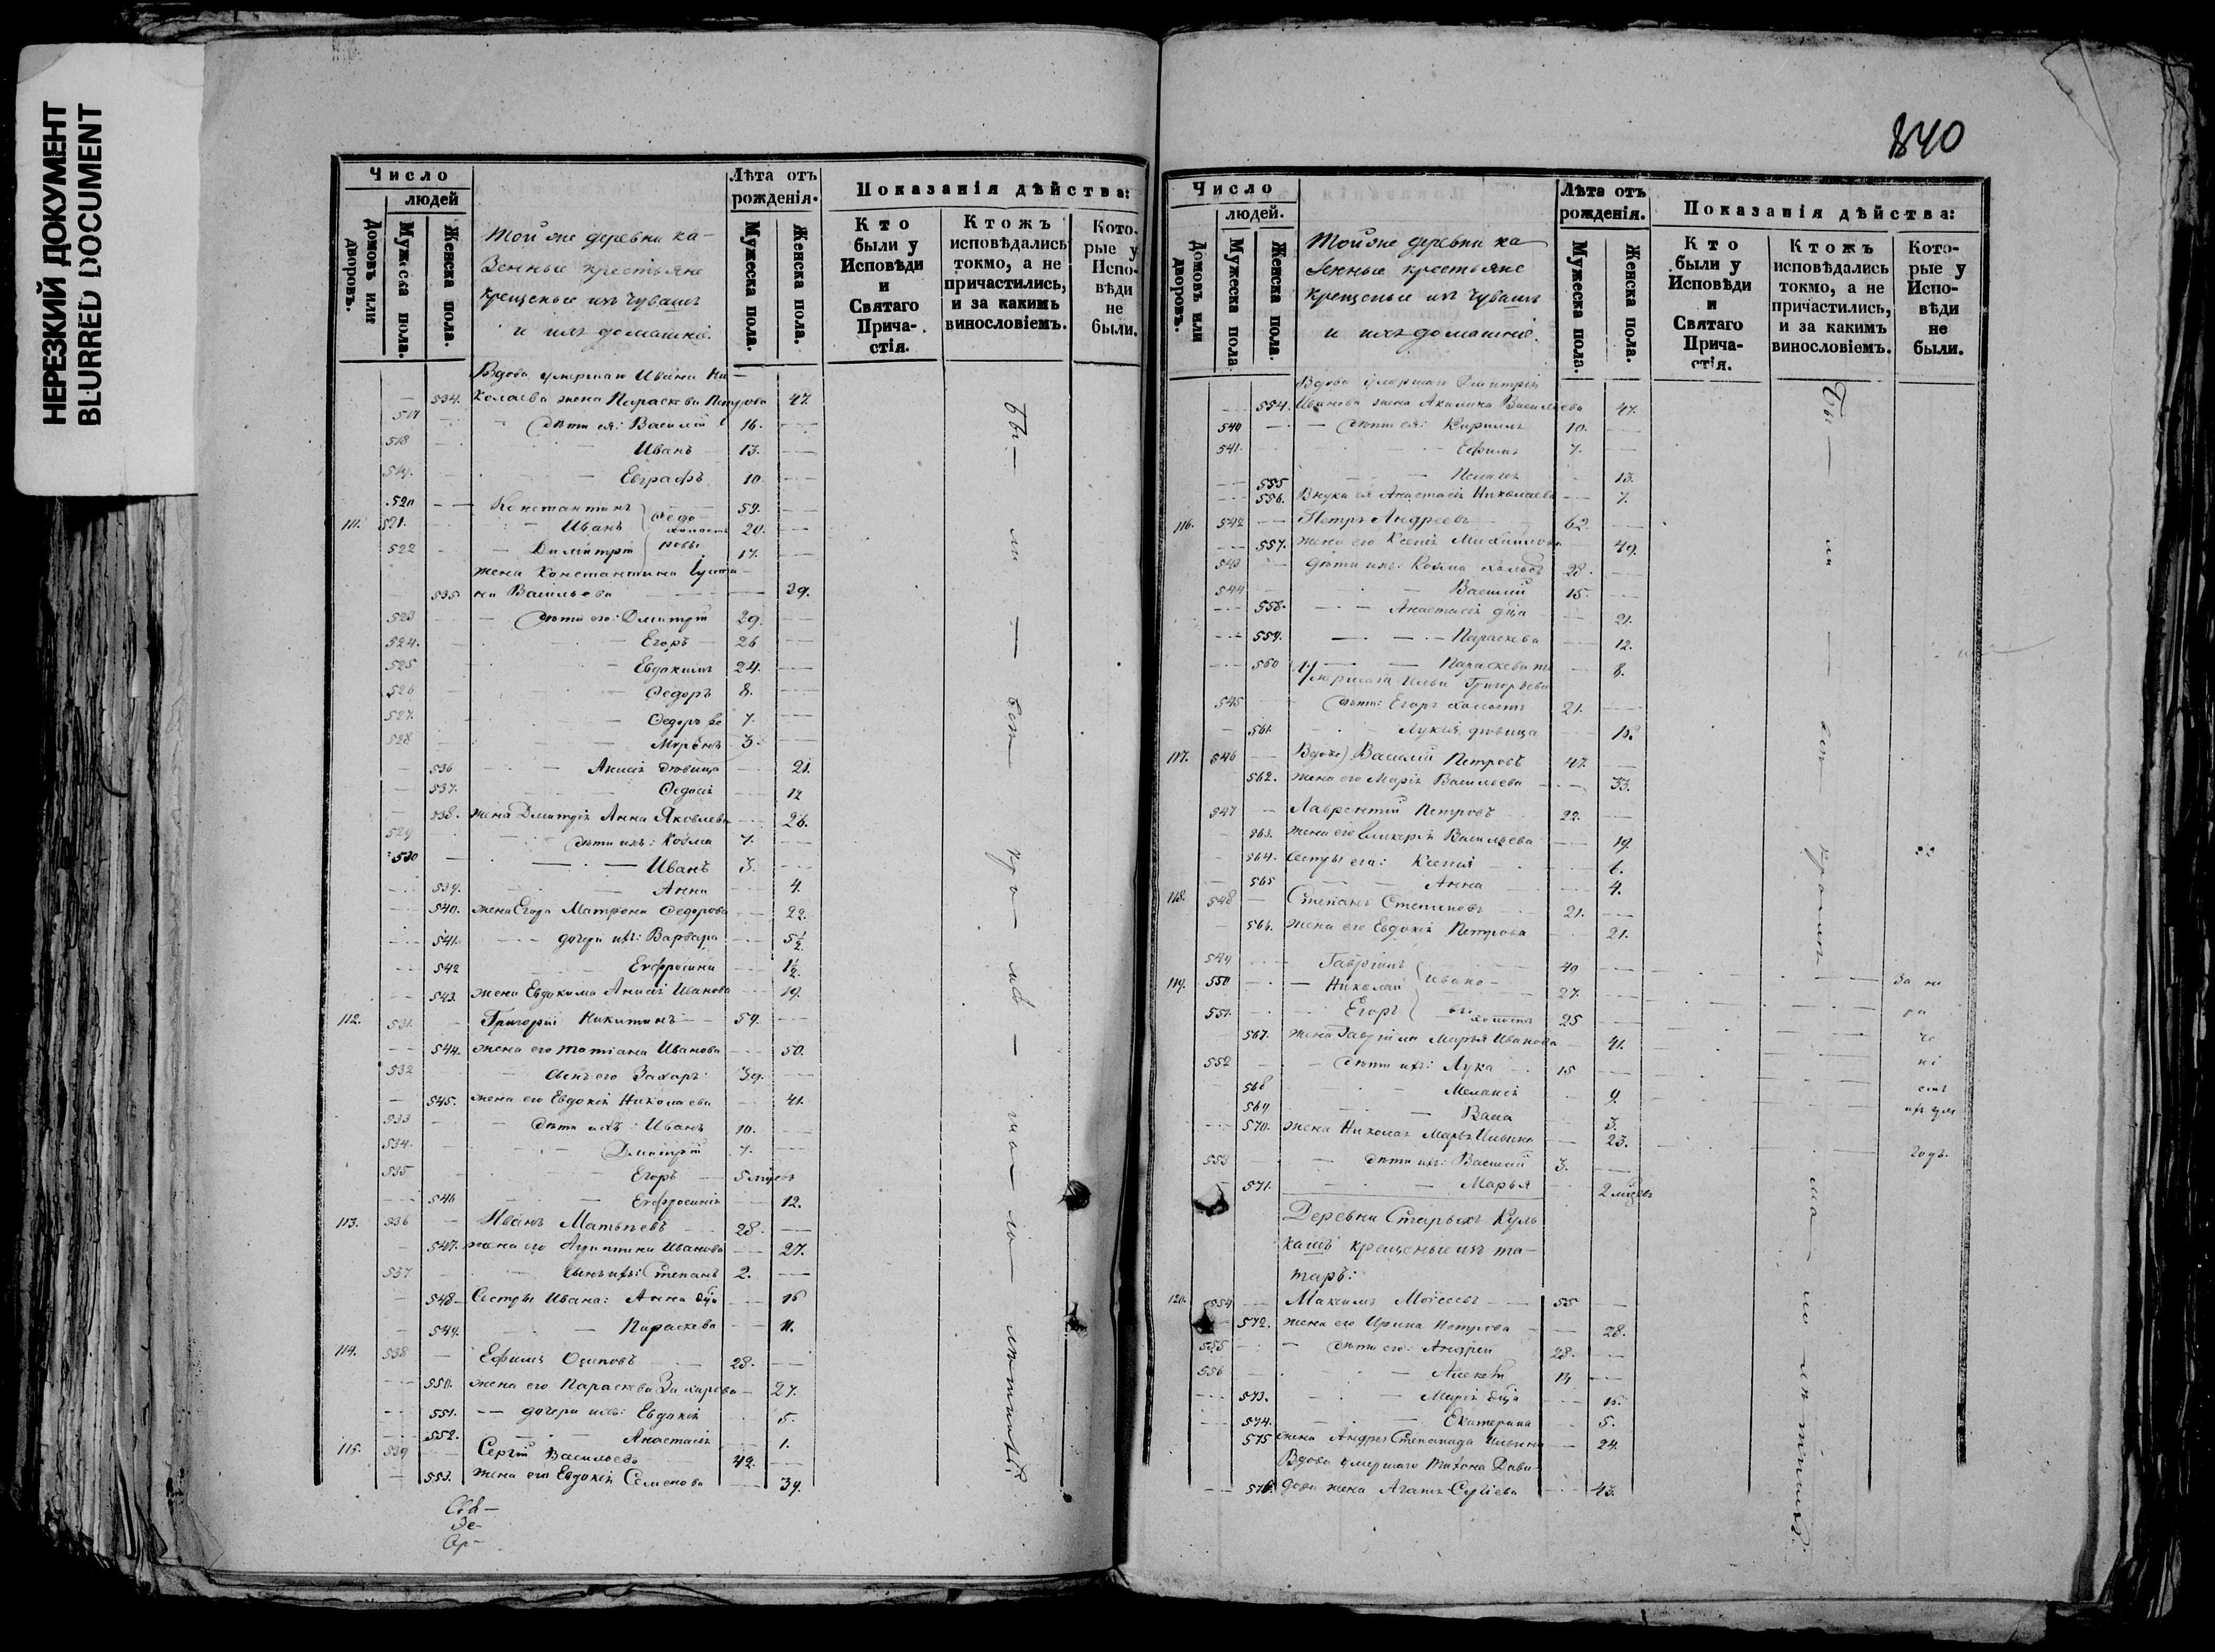 НЕРЕЗКИЙ ДОКУМЕНТ
BLURRED DOCUMENT
840
Число
людей
Домовъ или дворовъ.
Мужеска пола.
Женска пола.
Той же деревни ка-
зенные крестьяне
крещеные изъ чувашъ
и ихъ домашніе.
Лѣта отъ рожденія.
Мужеска пола.
Женска пола.
Показанія дѣйства:
Кто были у Исповѣди и Святаго Прича-стія.
Ктожъ исповѣдались токмо, а не причастились, и за какимъ винословіемъ.
Кото-рые у Испо-вѣди не были.
Вдова умершаго Ивана Ни-
534. колаева жена Параскева Петрова 47.
517 дѣти ея: Василій 16.
518 Иванъ 13.
519. Евграфъ 10.
520 Константинъ 59.
111. 521. Иванъ Федо- холостъ 20.
522 Димитрій ровы 17.
жена Константина Іусти-
535 на Васильева 39.
523 дѣти его: Дмитрій 29.
524. Егоръ 26
525 Евдокимъ 24.
526 Федоръ 8.
527. Федоръ 7.
528 Миронъ 3.
536 Анисія дѣвица 21.
537. Федосія 12
538. жена Дмитрія Анна Яковлева 26.
529 дѣти ихъ: Козма 7.
530 Иванъ 3.
539. Анна 4.
540. жена Егора Матрона Федорова 22.
541. дочери ихъ: Варвара 5½
542 Евфросинія 1½
543. жена Евдокима Анисія Иванова 19.
112. 531. Григорій Никитинъ 59.
544. жена его Татіана Иванова 50.
532 сынъ его Захаръ 39.
545. жена его Евдокія Николаева 41.
533 дѣти ихъ: Иванъ 10.
534. Дмитрій 7.
535 Егоръ 5 мѣсяцъ
546 Евфросинія 12.
113. 536 Иванъ Матвѣевъ 28.
547. жена его Иванова 27.
537 сынъ ихъ: Степанъ 2.
548 Сестры Ивана: Анна дѣца 16
549. Параскева 11.
114. 538 Ефимъ Осиповъ 28.
550. жена его Параскева Захарова 27.
551. дочери ихъ: Евдокія 5.
552. Анастасія 1.
115. 539 Сергій Васильевъ 42.
553. жена его Евдокія Семенова 39.
Бы- ли - всѣ кро- мѣ - ма- ло- лѣтныхъ.
Число
людей.
Домовъ или дворовъ.
Мужеска пола
Женска пола.
Той же деревни ка-
зенные крестьяне
крещеные изъ чувашъ
и ихъ домашніе.
Лѣта отъ рожденія.
Мужеска пола.
Женска пола.
Показанія дѣйства:
Кто были у Исповѣди и Святаго Прича-стія.
Ктожъ исповѣдались токмо, а не причастились, и за какимъ винословіемъ.
Кото-рые у Испо-вѣди не были.
Вдова умершаго Дмитрія
554. Иванова жена Акилина Васильева 47.
540 дѣти ея: Кириллъ 10.
541. Ефимъ 7.
555 Пелагія 13.
556. Внука ея Анастасія Николаева 7.
116. 542 Петръ Андреевъ 62.
557. жена его Ксенія Михайлова 49.
543 дѣти ихъ: Козма холостъ 28.
544 Василій 15.
558. Анастасія дѣца 21.
559. Параскева 12.
560 Параскева 8.
умершаго Ильи Григорьева
545 дѣти: Егоръ холостъ 21.
561. Лукія дѣвица 18.
117. 546 Василій Петровъ 47.
562. жена его Марія Васильева 33.
547 Лаврентій Петровъ 22.
563. жена его Гликерія Васильева 19.
564. Сестры его: Ксенія 6.
565 Анна 4.
118. 548 Степанъ Степановъ 21.
566. жена его Евдокія Петрова 21.
549 Гавріилъ 49
119. 550 Николай Ивано- 27.
551. Егоръ вы холостъ 25
567. жена Гавріила Марья Иванова 41.
552 дѣти ихъ: Лука 15
568 Меланія 9.
569 Васса 3.
570. жена Николая Марья Ильина 23.
553 дѣти ихъ: Василій 3.
571. Марья 2 мѣсяцъ
Деревни Старыхъ Куль
кашъ крещеные изъ та-
таръ:
120. 554 Максимъ Моисеевъ 55
572. жена его Ирина Петрова 28.
555 дѣти его: Андрей 28.
556 Алексѣй 14
573. Марія дѣца 16.
574. Екатерина 5.
575 жена Андрея Степанида Ильина 24.
Вдова умершаго Тихона Давы-
576. дова жена Агафія Сергіева 43.
Бы- ли - всѣ - кромѣ ма- ло- лѣтныхъ.